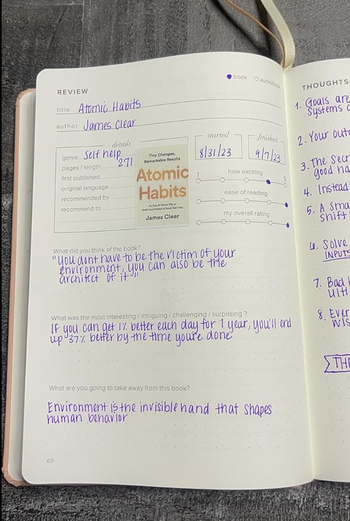 REVIEW
book
audiobook
title Atomic Habits
author James Clear
details
genre Self help
pages / length 271
first published
original language
recommended by
recommend to
Tiny Changes,
Remarkable Results
Atomic
Habits
James Clear
started
finished
8/31/23
9/7/23
how exciting
1
5
ease of reading
my overall rating
What did you think of the book?
"You dont have to be the victim of your
environment, you can also be the
architect of it"
What was the most interesting / intriguing / challenging / surprising?
If you can get 1% better each day for 1 year, you'll end
up 37% better by the time you're done
What are you going to take away from this book?
Environment is the invisible hand that shapes
human behavior
69
THOUGHTS
1. Goals are
systems
2. Your out
3. The secr
good ha
4. Instead
5. A sma
shift
6. Solve
INPUTS
7. Bad
ulti
8. Ever
wis
THE